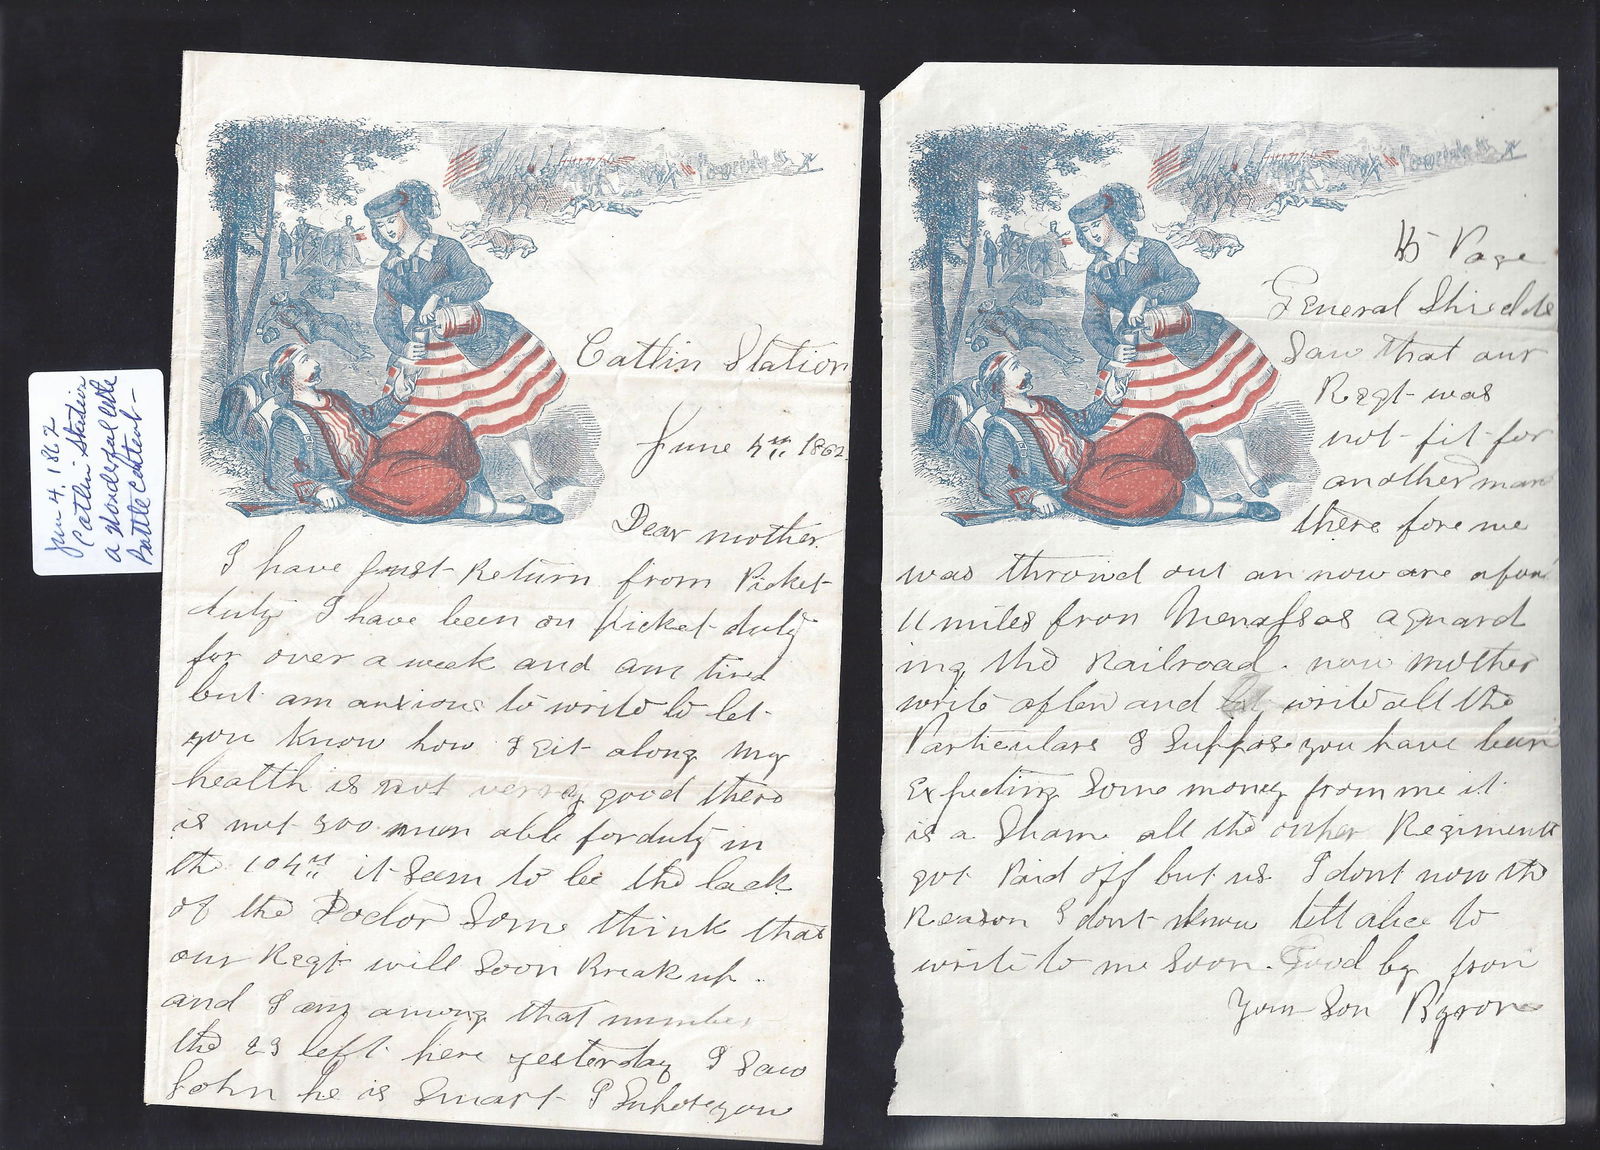 Jun 4, 1862
Catlin Station
a wonderful litho
battle content -
Catlin Station
June 4th 1862
Dear mother
I have Just Return from Picket
duty I have been on picket duty
for over a week and am tired
but am anxious to write to let
you know how I git along my
health is not verry good there
is not 300 men able for duty in
the 104th it Seem to be the lack
of the Doctor Some think that
our Regt will Soon Break up.
and I am among that number
the 23 left here yesterday I Saw
John he is Smart I Suhose you
Page
General Shields
Saw that our
Regt was
not fit for
another man
there fore we
was throwd out an now are
11 miles fron Menassas aguard
ing the Railroad. now mother
write often and write all the
Particulars I Suppose you have been
Expecting Some money from me it
is a Sham all the other Regiments
got Paid off but us I dont now the
Reason I dont know tell alice to
write to me Soon. Good by from
Your Son Byron